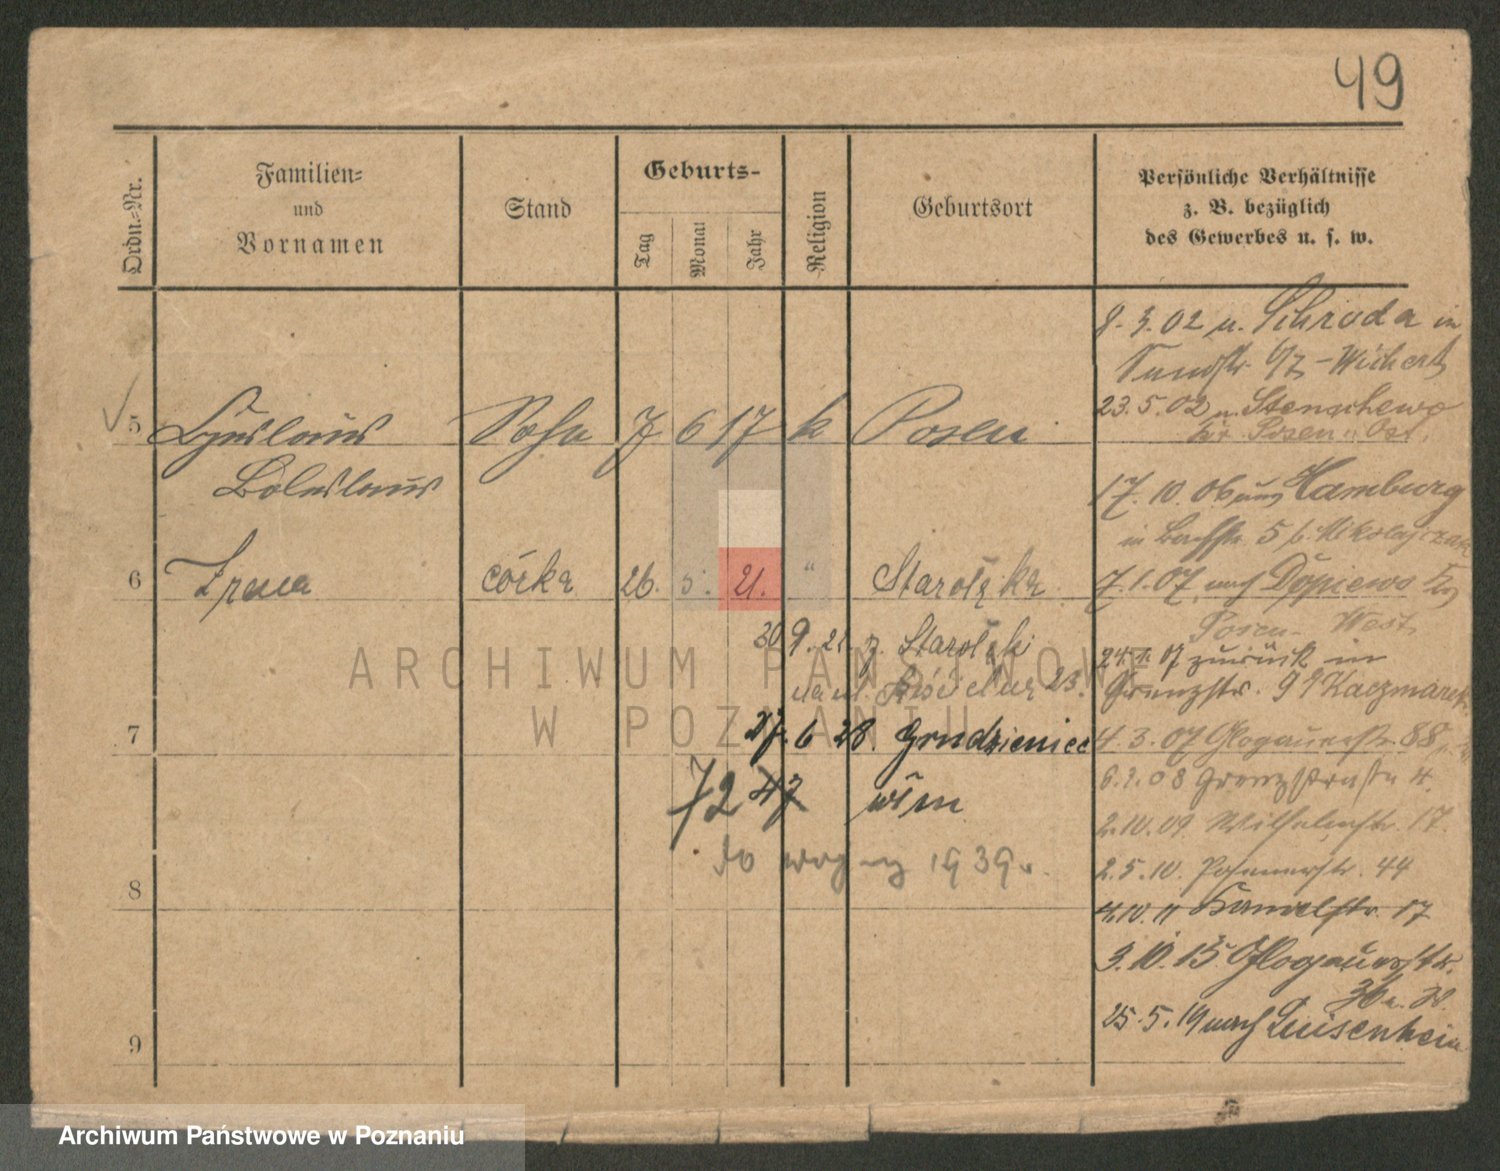 49
Ordn.=Nr.
Familien=
und
Vornamen
Stand
Geburts-
Tag
Monat
Jahr
Religion
Geburtsort
Persönliche Verhältnisse
z. B. bezüglich
des Gewerbes u. s. w.
8. 3. 02 n. Schroda in
23. 5. 02 n. Stenschewo
Kr. Posen Ost.
5 Sohn 7 6 17 k Posen
Boleslaus
17. 10. 06 Hamburg
in 5 b. Mikolajczak
6 Irena córka 26. 5. 21. " Starołęka
7. 1. 07 nach Dopiewo
Posen - West
30 9. 21 z. Starołęki
24. 1. 07 zurück in
Grenzstr. 9 Kaczmarek
na ul. 23.
7 27. 6 28. Grudzieniec
4. 3. 07 Glogauerstr. 88
6. 2. 08 Grenzstraße 4.
72 47
2. 10. 09. Wilhelmstr. 17.
do wojny 1939 r.
2. 5. 10. Posenerstr. 44
8
4. 10. 11 Kanalstr. 17
3. 10. 15 Glogauerstr.
25. 5. 19 nach Luisenhain
9
ARCHIWUM PAŃSTWOWE
W POZNANIU
Archiwum Państwowe w Poznaniu